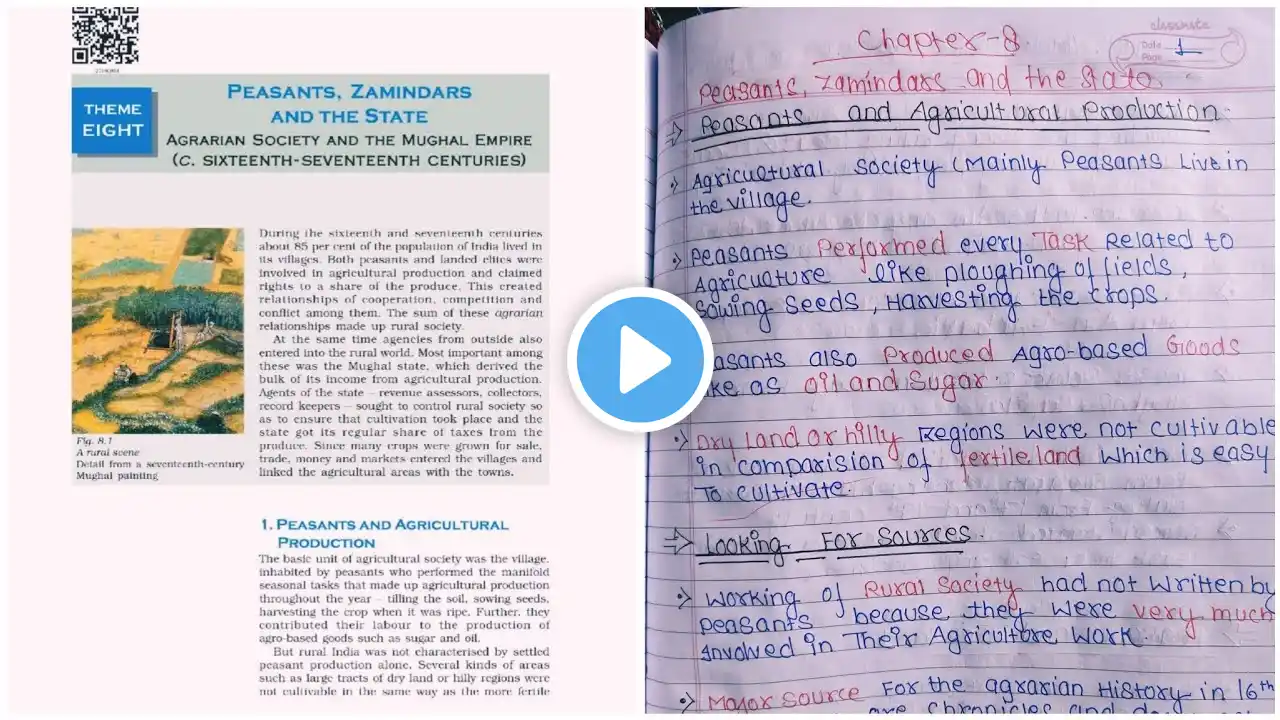 THEME
EIGHT
PEASANTS, ZAMINDARS
AND THE STATE
AGRARIAN SOCIETY AND THE MUGHAL EMPIRE
(C. SIXTEENTH-SEVENTEENTH CENTURIES)
During the sixteenth and seventeenth centuries
about 85 per cent of the population of India lived in
its villages. Both peasants and landed elites were
involved in agricultural production and claimed
rights to a share of the produce. This created
relationships of cooperation, competition and
conflict among them. The sum of these agrarian
relationships made up rural society.
At the same time agencies from outside also
entered into the rural world. Most important among
these was the Mughal state, which derived the
bulk of its income from agricultural production.
Agents of the state – revenue assessors, collectors,
record keepers – sought to control rural society so
as to ensure that cultivation took place and the
state got its regular share of taxes from the
produce. Since many crops were grown for sale,
trade, money and markets entered the villages and
linked the agricultural areas with the towns.
Fig. 8.1
A rural scene
Detail from a seventeenth-century
Mughal painting
1. PEASANTS AND AGRICULTURAL
PRODUCTION
The basic unit of agricultural society was the village,
inhabited by peasants who performed the manifold
seasonal tasks that made up agricultural production
throughout the year – tilling the soil, sowing seeds,
harvesting the crop when it was ripe. Further, they
contributed their labour to the production of
agro-based goods such as sugar and oil.
But rural India was not characterised by settled
peasant production alone. Several kinds of areas
such as large tracts of dry land or hilly regions were
not cultivable in the same way as the more fertile
classmate
Date
Page 1
Chapter-8
Peasants, Zamindars and the State
⇒ Peasants and Agricultural Production
Agricultural Society (Mainly Peasants Live in
the village.
Peasants Performed every Task Related to
Agriculture like ploughing of fields,
Sowing Seeds, Harvesting the crops.
asants also Produced Agro-based Goods
ke as Oil and Sugar.
Dry land or hilly Regions were not cultivable
in comparision of fertile land which is easy
To cultivate.
⇒ Looking For Sources.
Working of Rural Society had not written by
Peasants because they were very much
Involved in Their Agriculture Work.
Major Source For the agrarian History in 16th
are chronicles and